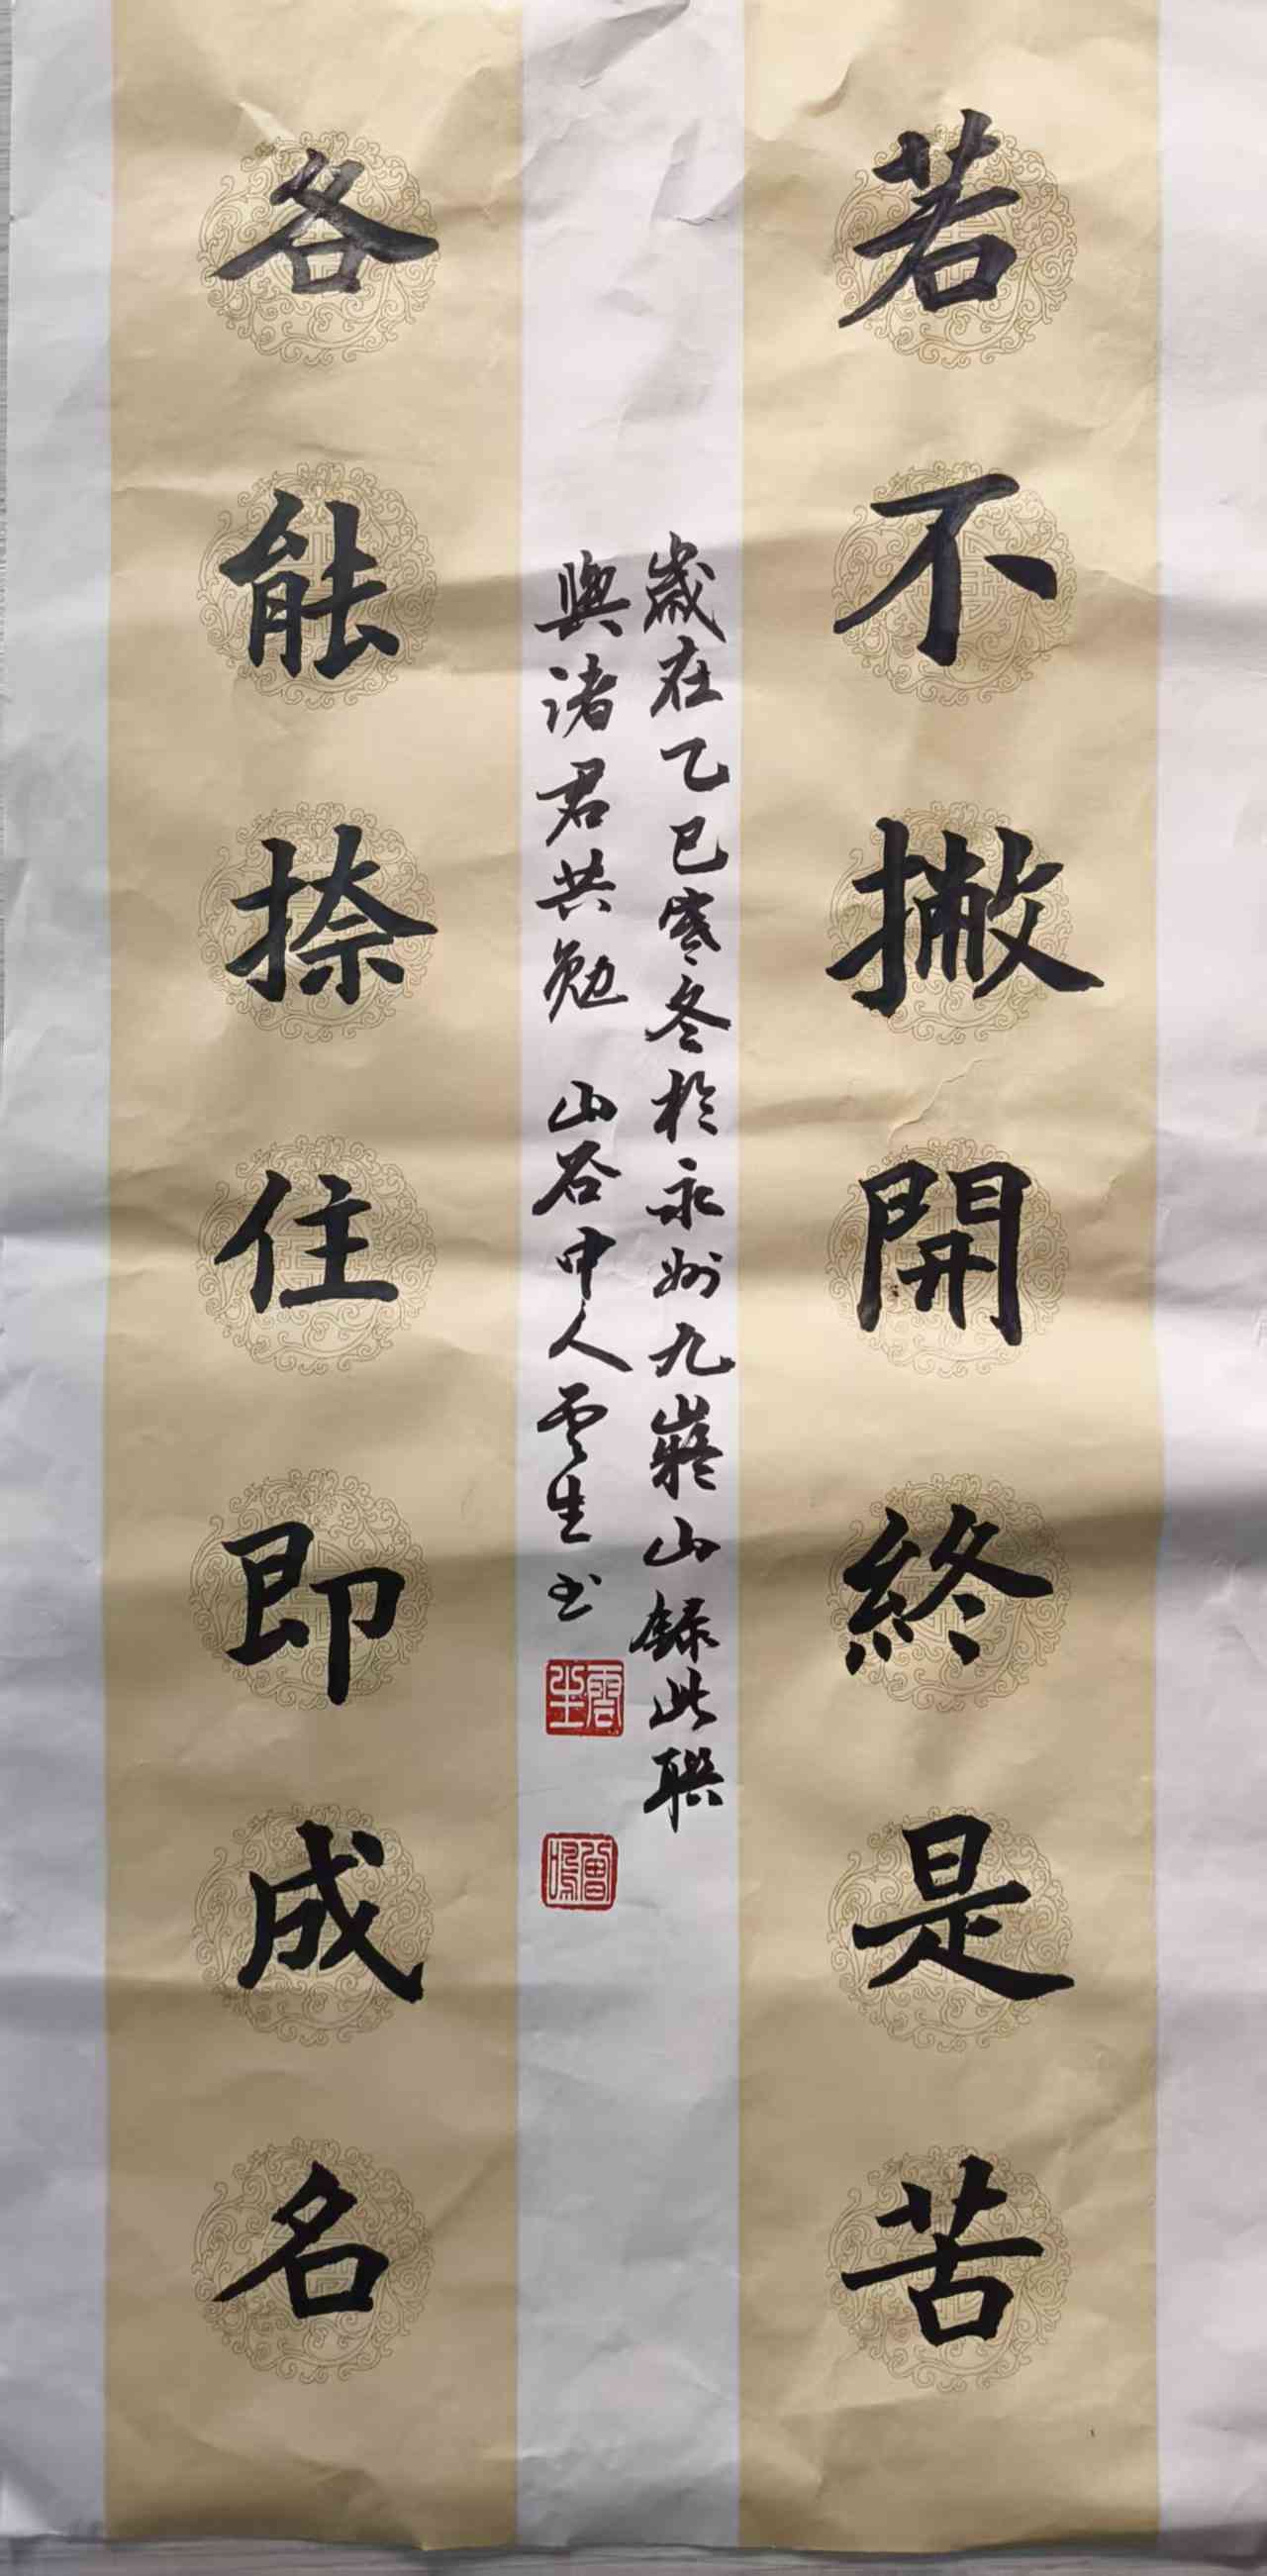 若不撇開終是苦
歲在乙巳寒冬於永州九嶷山録此聯
與諸君共勉 山谷中人雲生书
雲生
各能捺住即成名